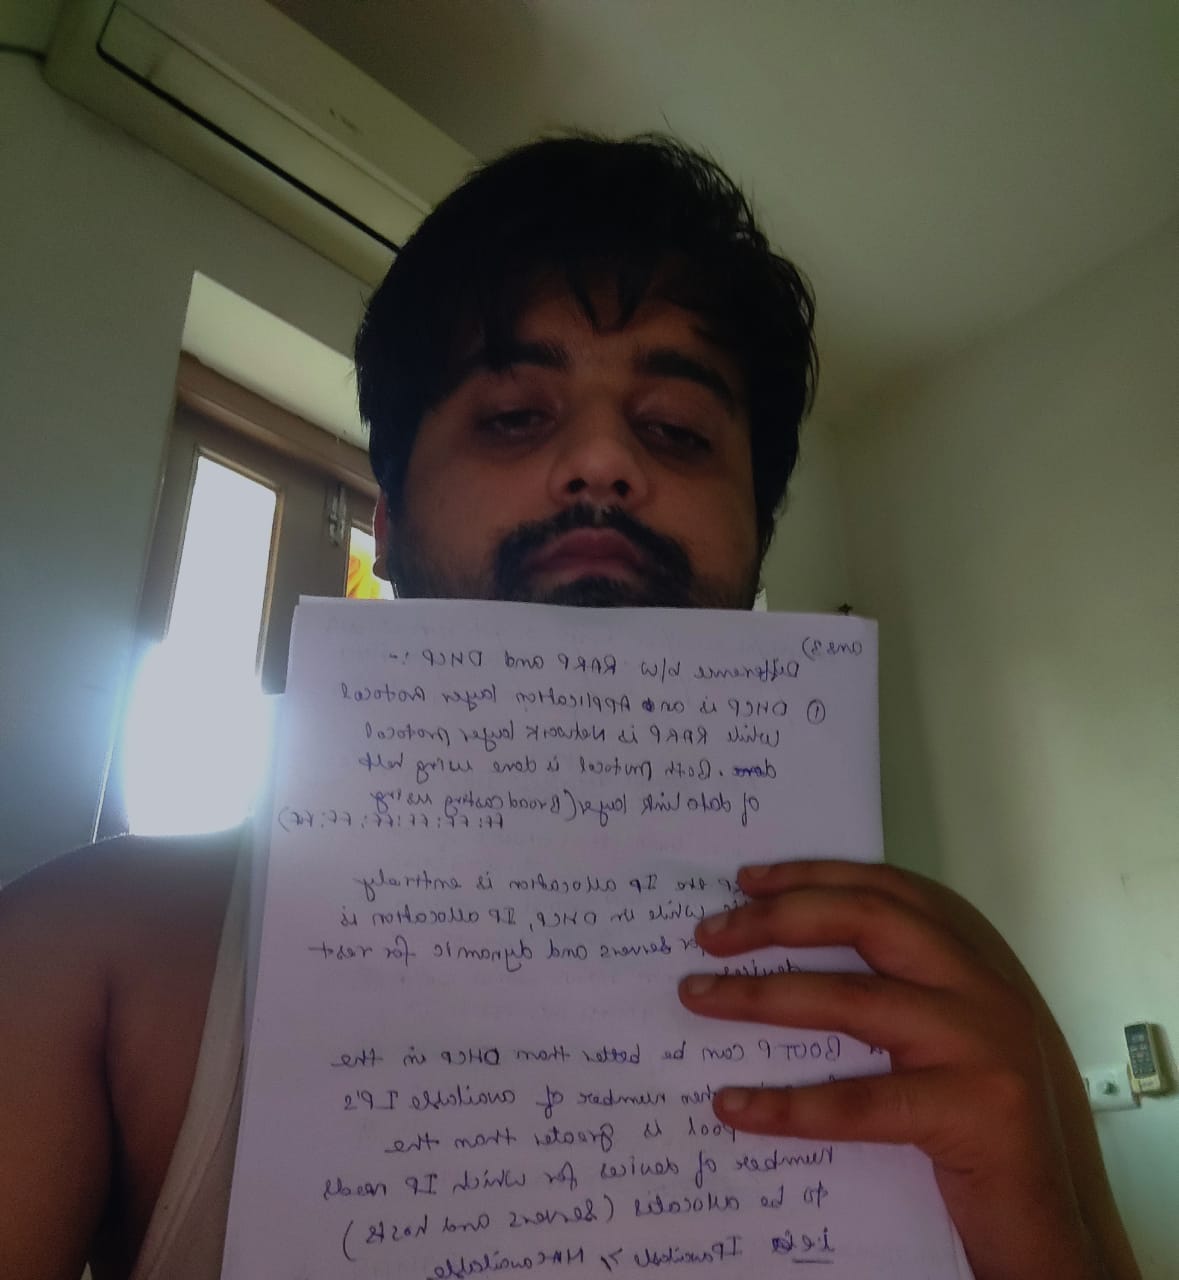 ans 3)
Difference b/w RARP and DHCP :-
① DHCP is an Application layer Protocol
while RARP is Network layer Protocol
. Both Protocol is done using help
of data link layer (Broadcasting using
FF:FF:FF:FF:FF:FF)
the IP allocation is entirely
while in DHCP, IP allocation is
servers and dynamic for rest
devices
BOOTP can be better than DHCP in the
number of available IP's
pool is greater than the
number of devices for which IP needs
to be allocate (Servers and hosts)
i.e. IPavailable > MACavailable